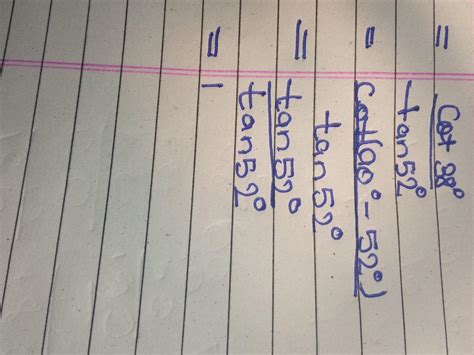 = cot 38°
tan 52°
= cot(90° - 52°)
tan 52°
= tan 52°
tan 52°
= 1